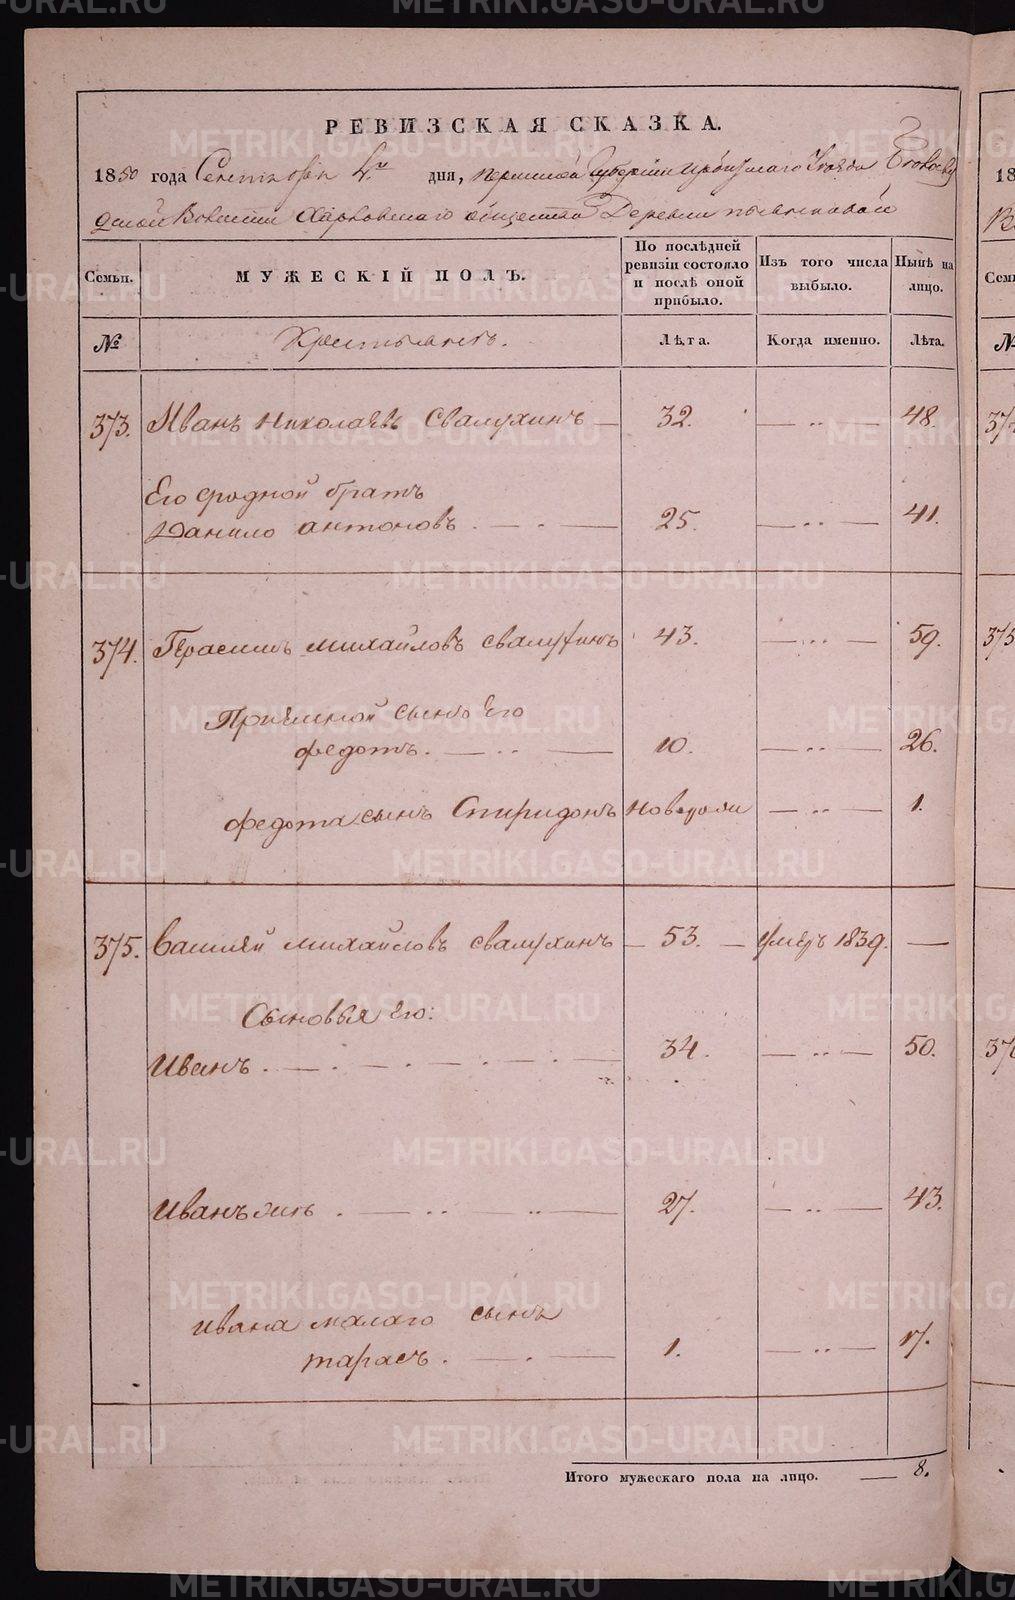 РЕВИЗСКАЯ СКАЗКА.
1850 года Сентября 4го дня, Пермской Губернии Ирбитского Уезда
Волости Харловского общества Деревни
Семьи. МУЖЕСКІЙ ПОЛЪ. По послѣдней ревизіи состояло и послѣ оной прибыло. Изъ того числа выбыло. Нынѣ на лицо.
№ Крестьянъ. Лѣта. Когда именно. Лѣта.
373. Иванъ Николаевъ Свалухинъ — 32. — .. — 48.
Его сродной братъ
Данило Антоновъ . — . — 25. — .. — 41.
374. Герасимъ Михайловъ Свалухинъ 43. — .. — 59.
Приемной сынъ Его
Федотъ. — .. — 10. — .. — 26.
Федота сынъ Спиридонъ — .. — 1.
375. Василей Михайловъ Свалухинъ — 53. — умеръ 1839. —
Сыновья Его:
Иванъ . — . — . — . — 34. — .. — 50.
Иванъ же . — .. .. — 27. — .. — 43.
Ивана малаго сынъ
Тарасъ . — . — 1. — .. — 17.
Итого мужескаго пола на лицо. — 8.
METRIKI.GASO-URAL.RU